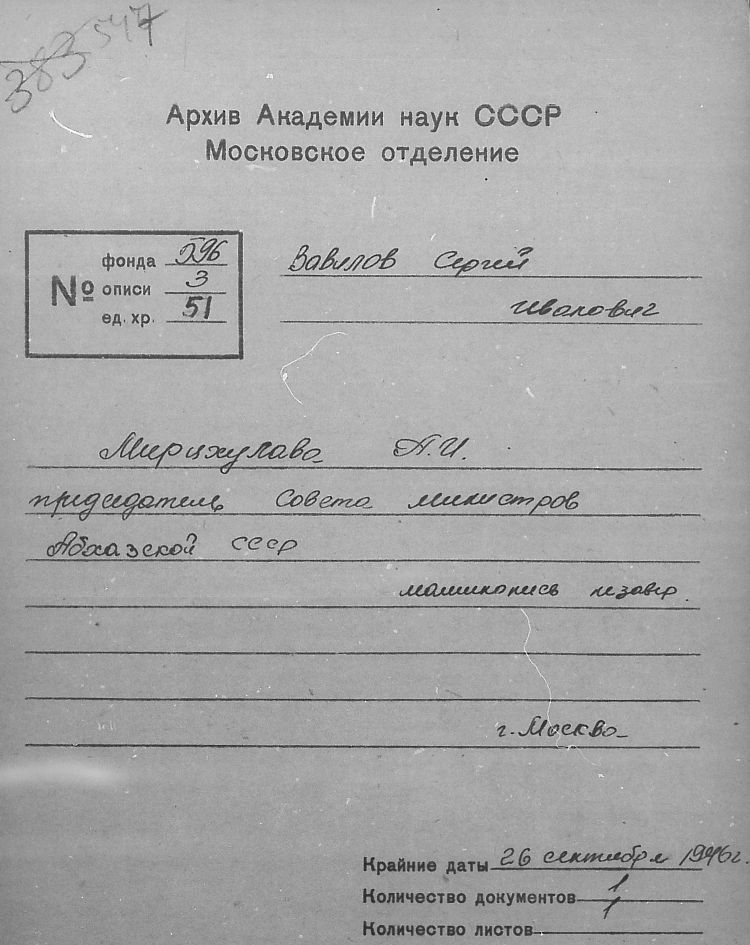 383 547
Архив Академии наук СССР
Московское отделение
№
фонда 596
описи 3
ед. хр. 51
Вавилов Сергей
Иванович
Мирцхулава А.И.
председатель Совета министров
Абхазской СССР
машинопись незавер.
г. Москва
Крайние даты 26 сентября 1946г.
Количество документов 1
Количество листов 1